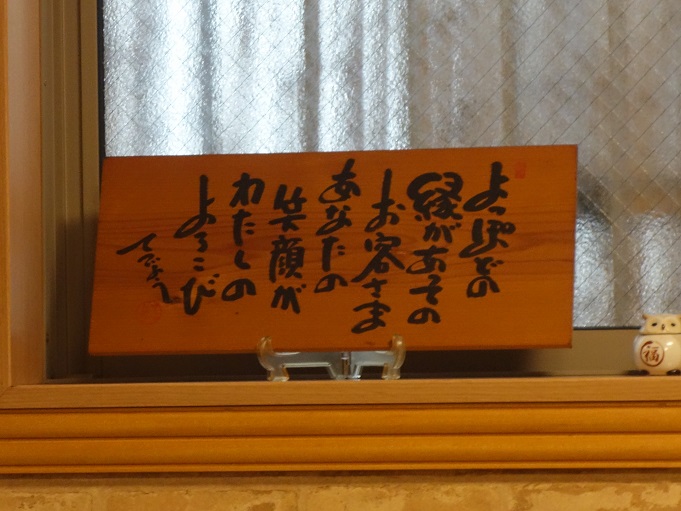 よっぽどの
縁があその
お客さま
あなたの
笑顔が
わたしの
よろこび
福